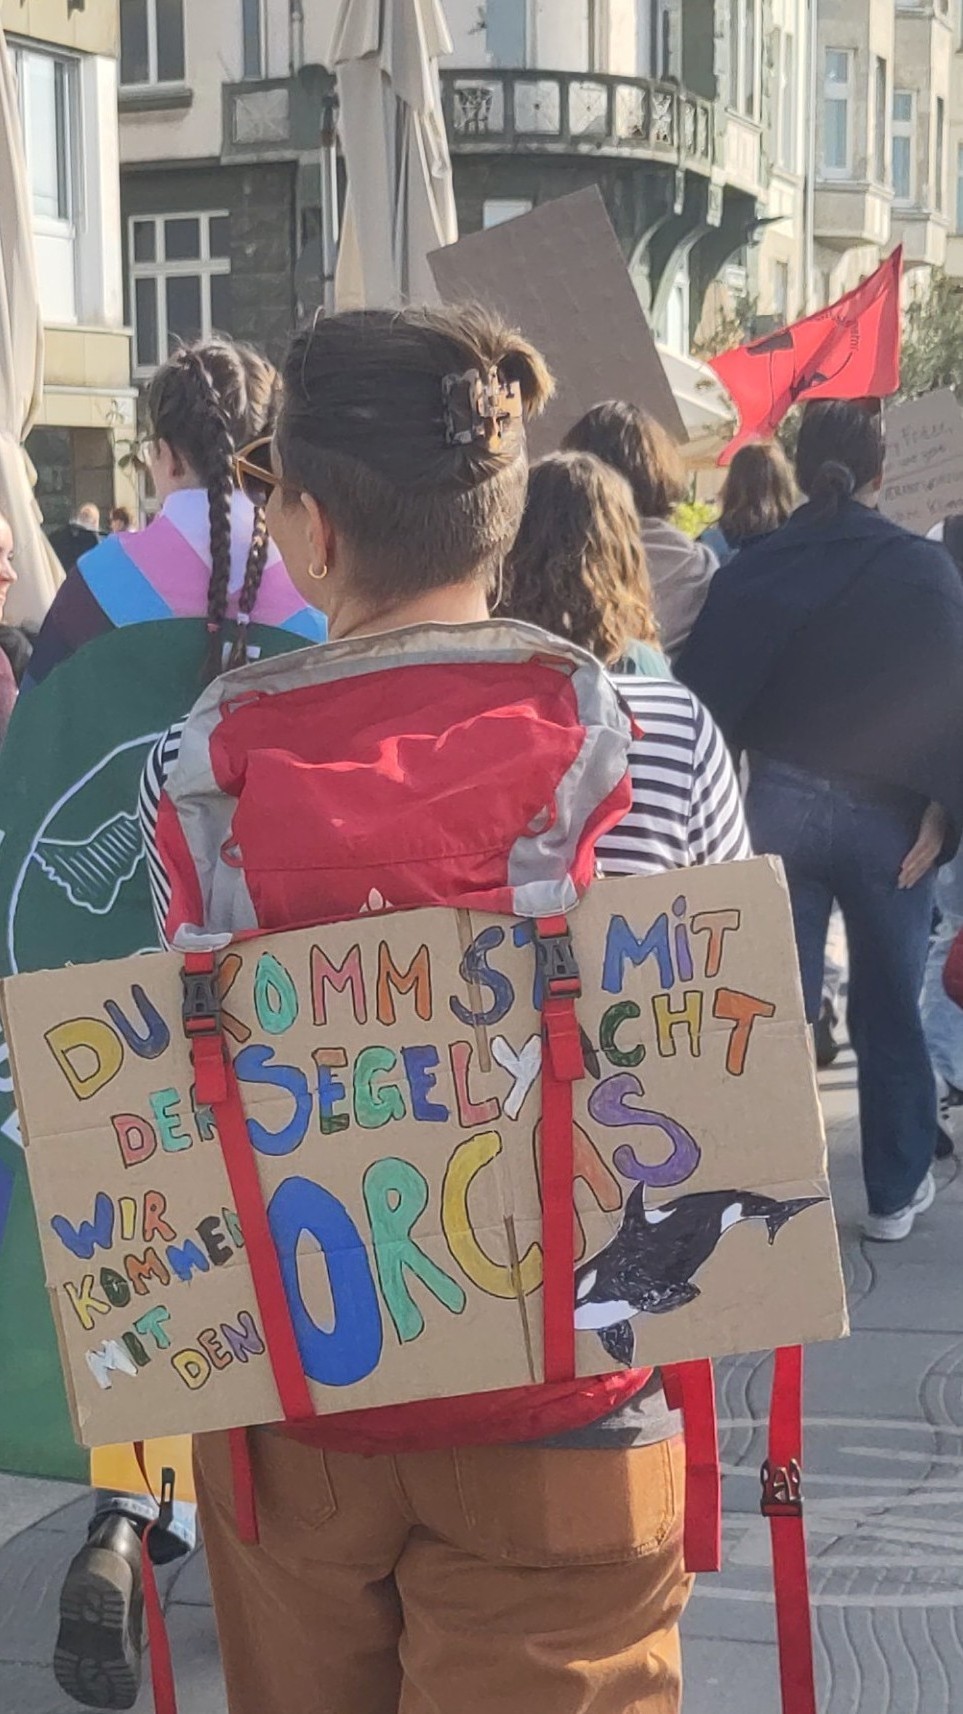 DU KOMMST MIT
DER SEGELYACHT
WIR
KOMMEN
MIT
DEN
ORCAS